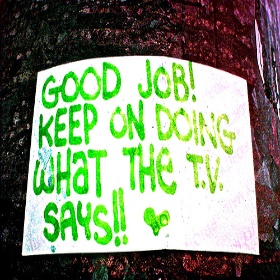 GOOD JOB!
KEEP ON DOING
WHAT THE T.V.
SAYS!!